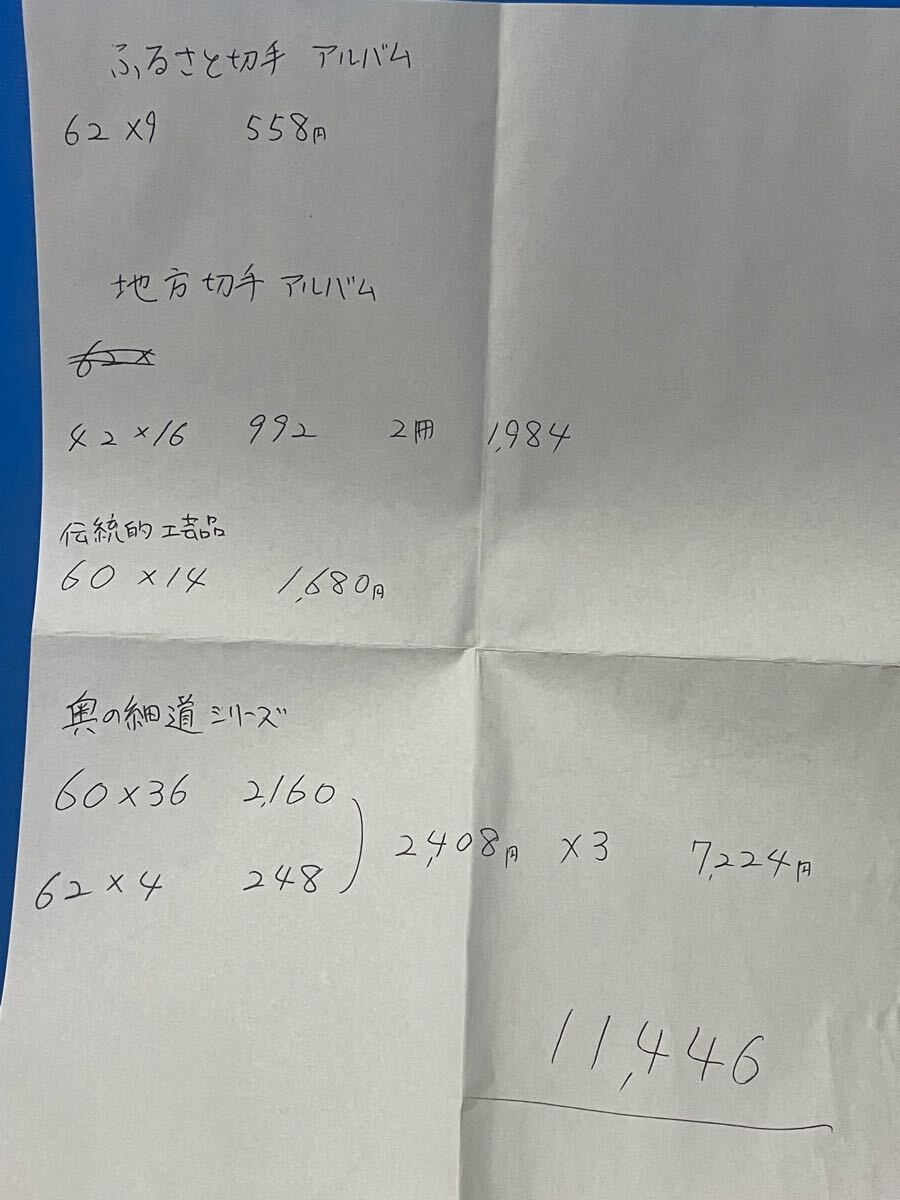 ふるさと切手 アルバム
62×9 558円
地方切手 アルバム
62×
42×16 992 2冊 1,984
伝統的工芸品
60×14 1,680円
奥の細道シリーズ
60×36 2,160
2,408円 ×3 7,224円
62×4 248
11,446